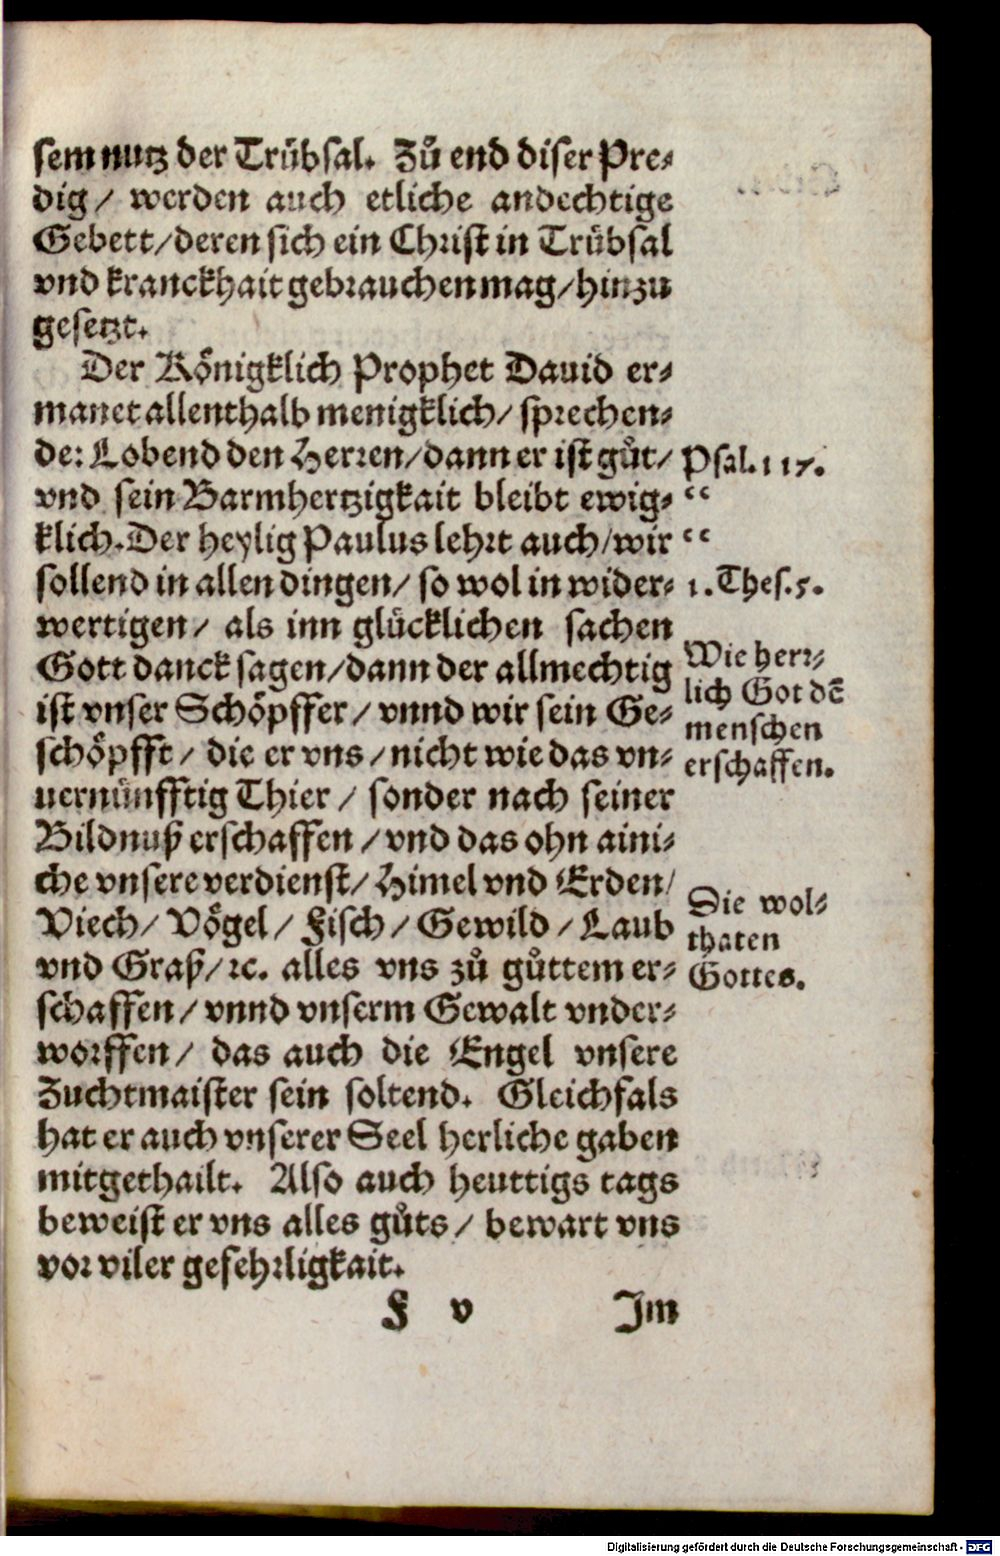 sem nutz der Trübsal. Zů end diser Pre⸗
dig/ werden auch etliche andechtige
Gebett/deren sich ein Christ in Trübsal
vnd kranckhait gebrauchen mag/hinzu
gesetzt.
Der Königklich Prophet Dauid er⸗
manet allenthalb menigklich/ sprechen⸗
de: Lobend den Herren/dann er ist gůt/
vnd sein Barmhertzigkait bleibt ewig⸗
klich. Der heylig Paulus lehrt auch/wir
sollend in allen dingen/ so wol in wider⸗
wertigen/ als inn glücklichen sachen
Gott danck sagen/dann der allmechtig
ist vnser Schöpffer/ vnnd wir sein Ge⸗
schöpfft/ die er vns/nicht wie das vn⸗
uernünfftig Thier/ sonder nach seiner
Bildnuß erschaffen/vnd das ohn aini⸗
che vnsere verdienst/Himel vnd Erden/
Viech/ Vögel/ Fisch/ Gewild/ Laub
vnd Graß/ꝛc. alles vns zů gůttem er⸗
schaffen/ vnnd vnserm Gewalt vnder⸗
worffen/ das auch die Engel vnsere
Zuchtmaister sein soltend. Gleichfals
hat er auch vnserer Seel herliche gaben
mitgethailt. Also auch heuttigs tags
beweist er vns alles gůts/ bewart vns
vor viler gefehrligkait.
F v Im
Psal. 117.
“
“
1. Thes. 5.
Wie herr⸗
lich Got dē
menschen
erschaffen.
Die wol⸗
thaten
Gottes.
Digitalisierung gefördert durch die Deutsche Forschungsgemeinschaft - DFG